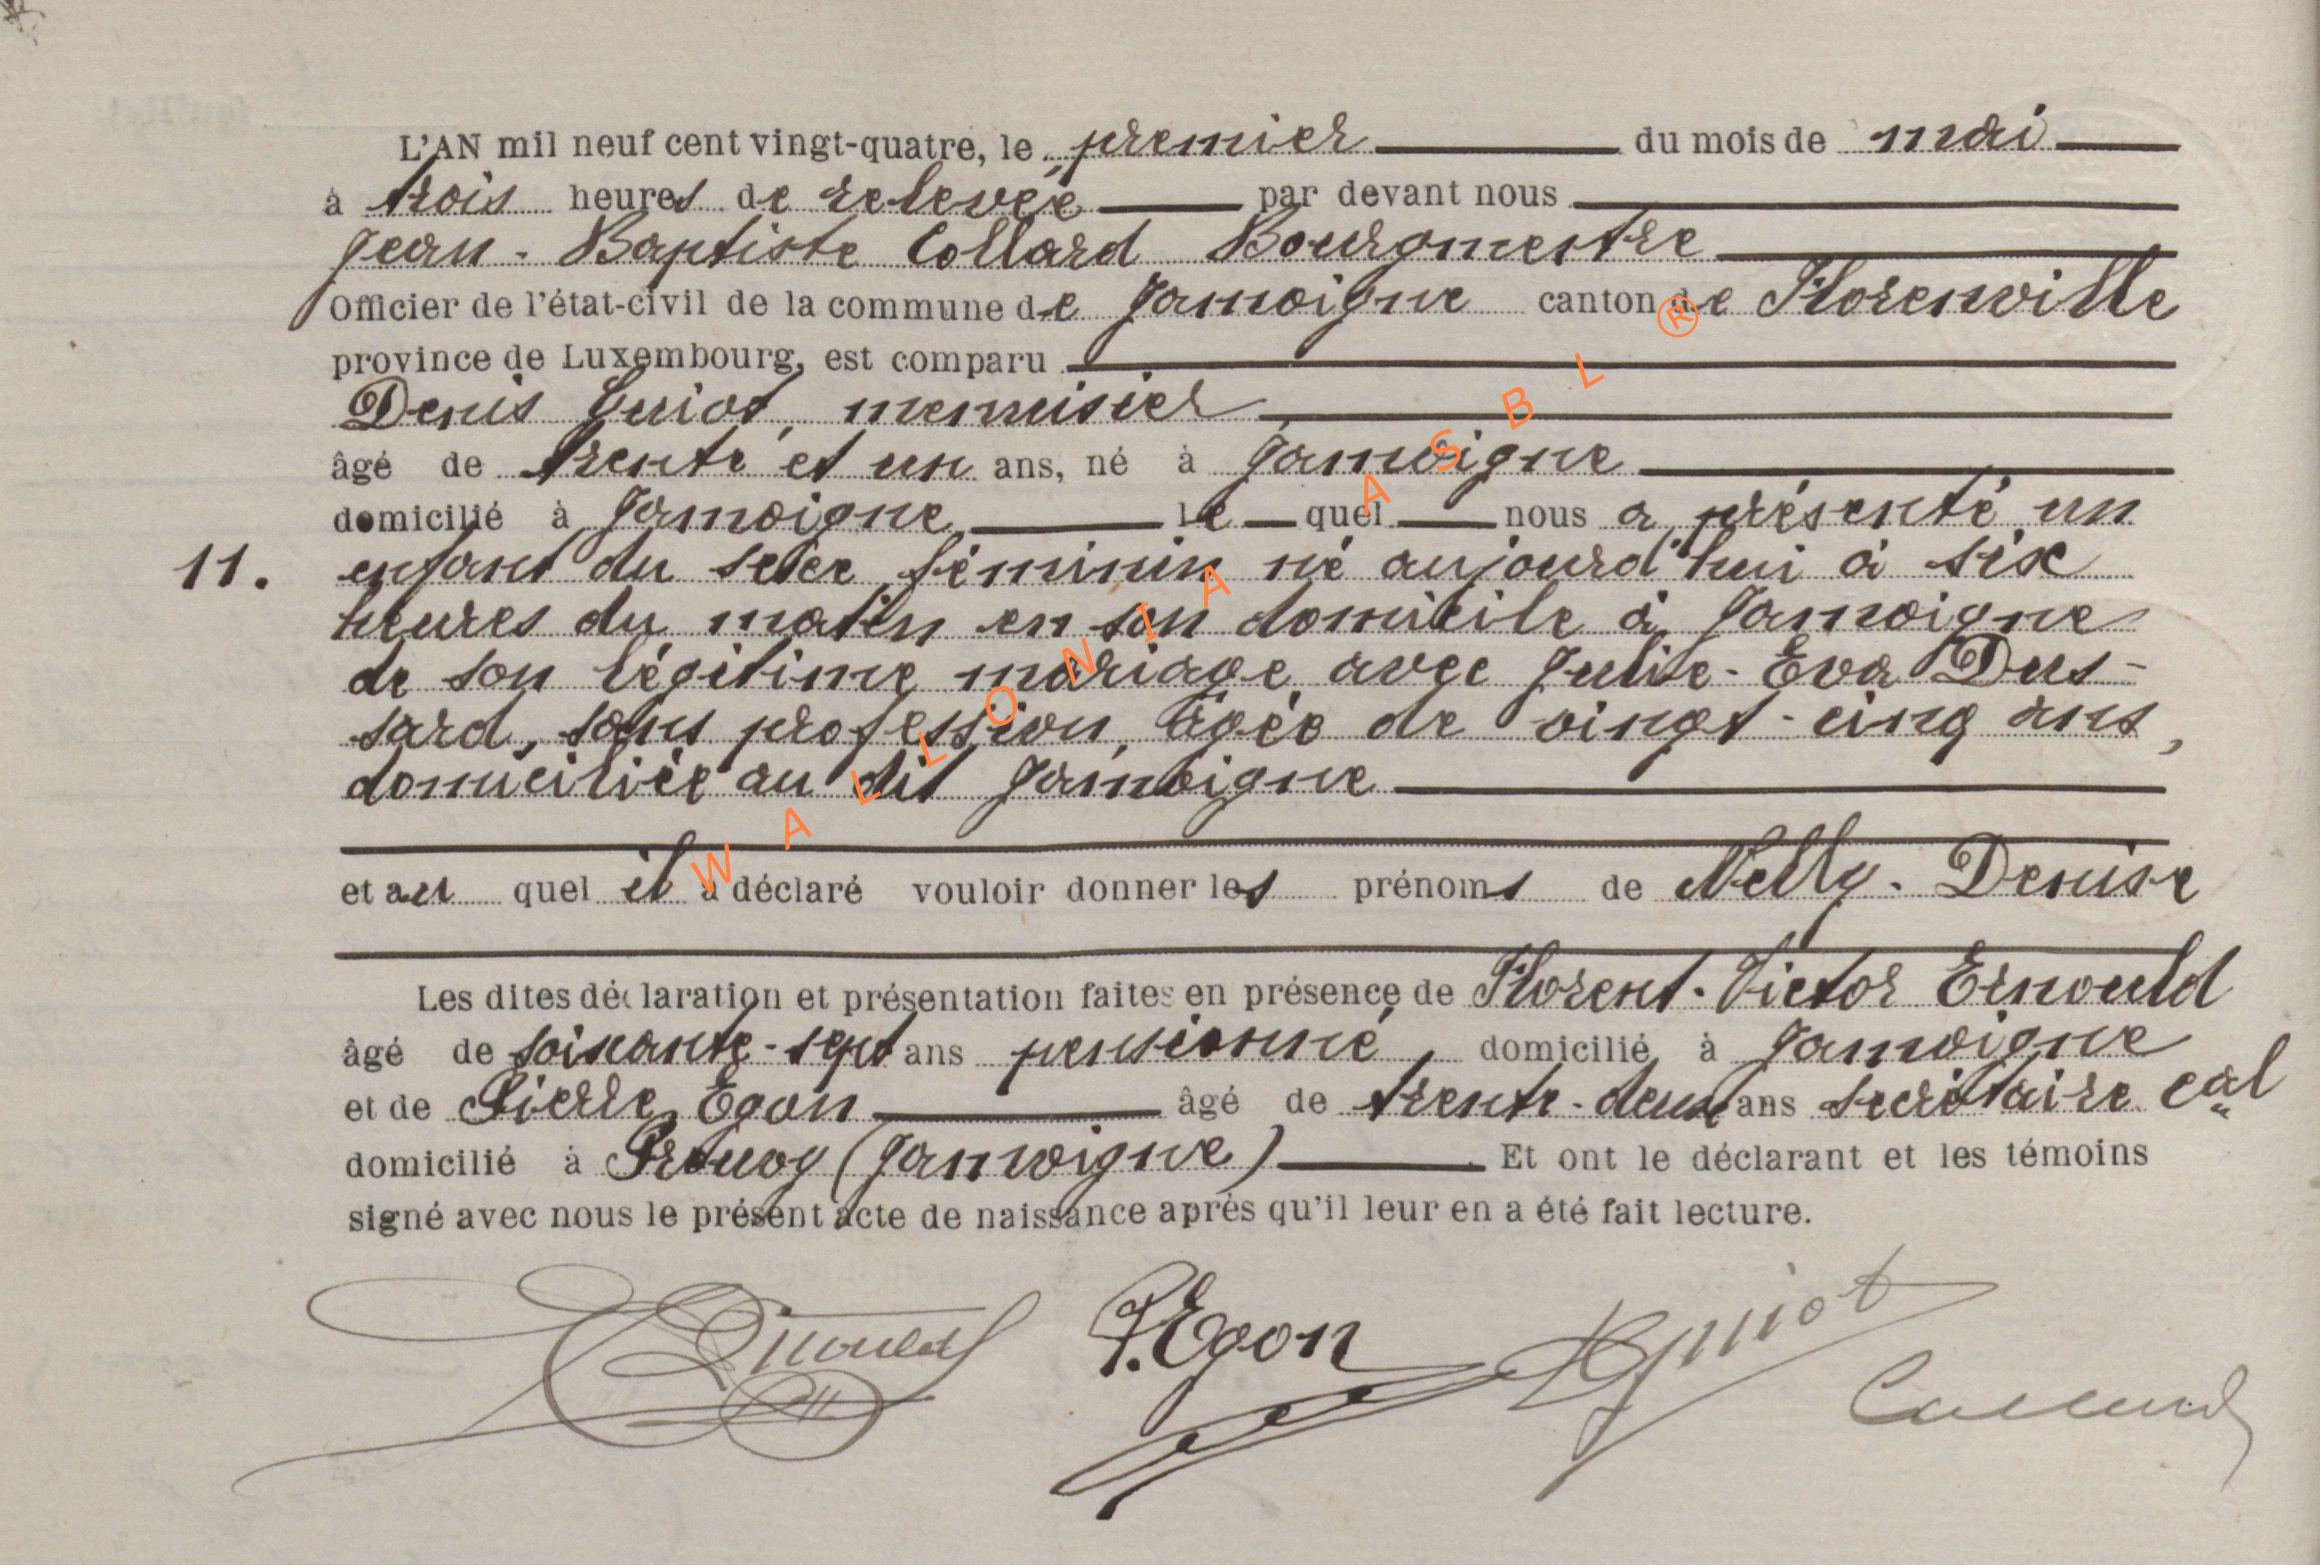 L'AN mil neuf cent vingt-quatre, le premier du mois de mai
à trois heures de relevée par devant nous
Jean-Baptiste Collard Bourgmestre
Officier de l'état-civil de la commune de Jamoigne canton de Florenville
province de Luxembourg, est comparu
Denis Guiot, menuisier
âgé de trente et un ans, né à Jamoigne
domicilié à Jamoigne le quel nous a présenté un
11. enfant du sexe féminin né aujourd'hui à six
heures du matin en son domicile à Jamoigne
de son légitime mariage avec Julie-Eva Dus-
sard, sans profession, âgée de vingt-cinq ans,
domiciliée au dit Jamoigne
et au quel il a déclaré vouloir donner les prénoms de Nelly-Denise
Les dites déclaration et présentation faites en présence de Florent-Victor Ernould
âgé de soixante-sept ans pensionné, domicilié à Jamoigne
et de Pierre, Egon âgé de trente-deux ans secrétaire cal
domicilié à Prouvy (Jamoigne) Et ont le déclarant et les témoins
signé avec nous le présent acte de naissance après qu'il leur en a été fait lecture.
Ernould P. Egon D Guiot Collard
WALLONIA ASBL ®